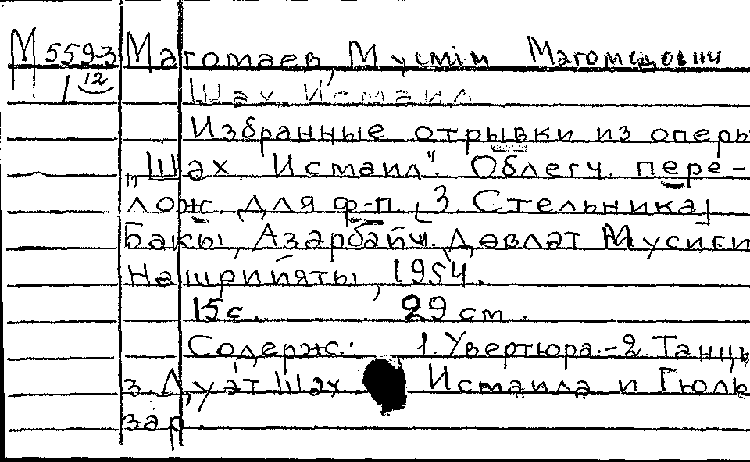 М 5593 Магомаев, Муслім Магомедович
1 12
Шах Исмаил
Избранные отрывки из оперы
„Шах Исмаил". Облегч. пере-
лож. для ф-п. [З. Стельника]
Бакы, Азәрбайҹ. Дөвлат Мусиги
Нәшрийяты, 1954.
15с. 29 см.
Содерж.: 1. Увертюра.-2. Танцы
3. Дуэт Шах Исмаила и Гюль
зар.